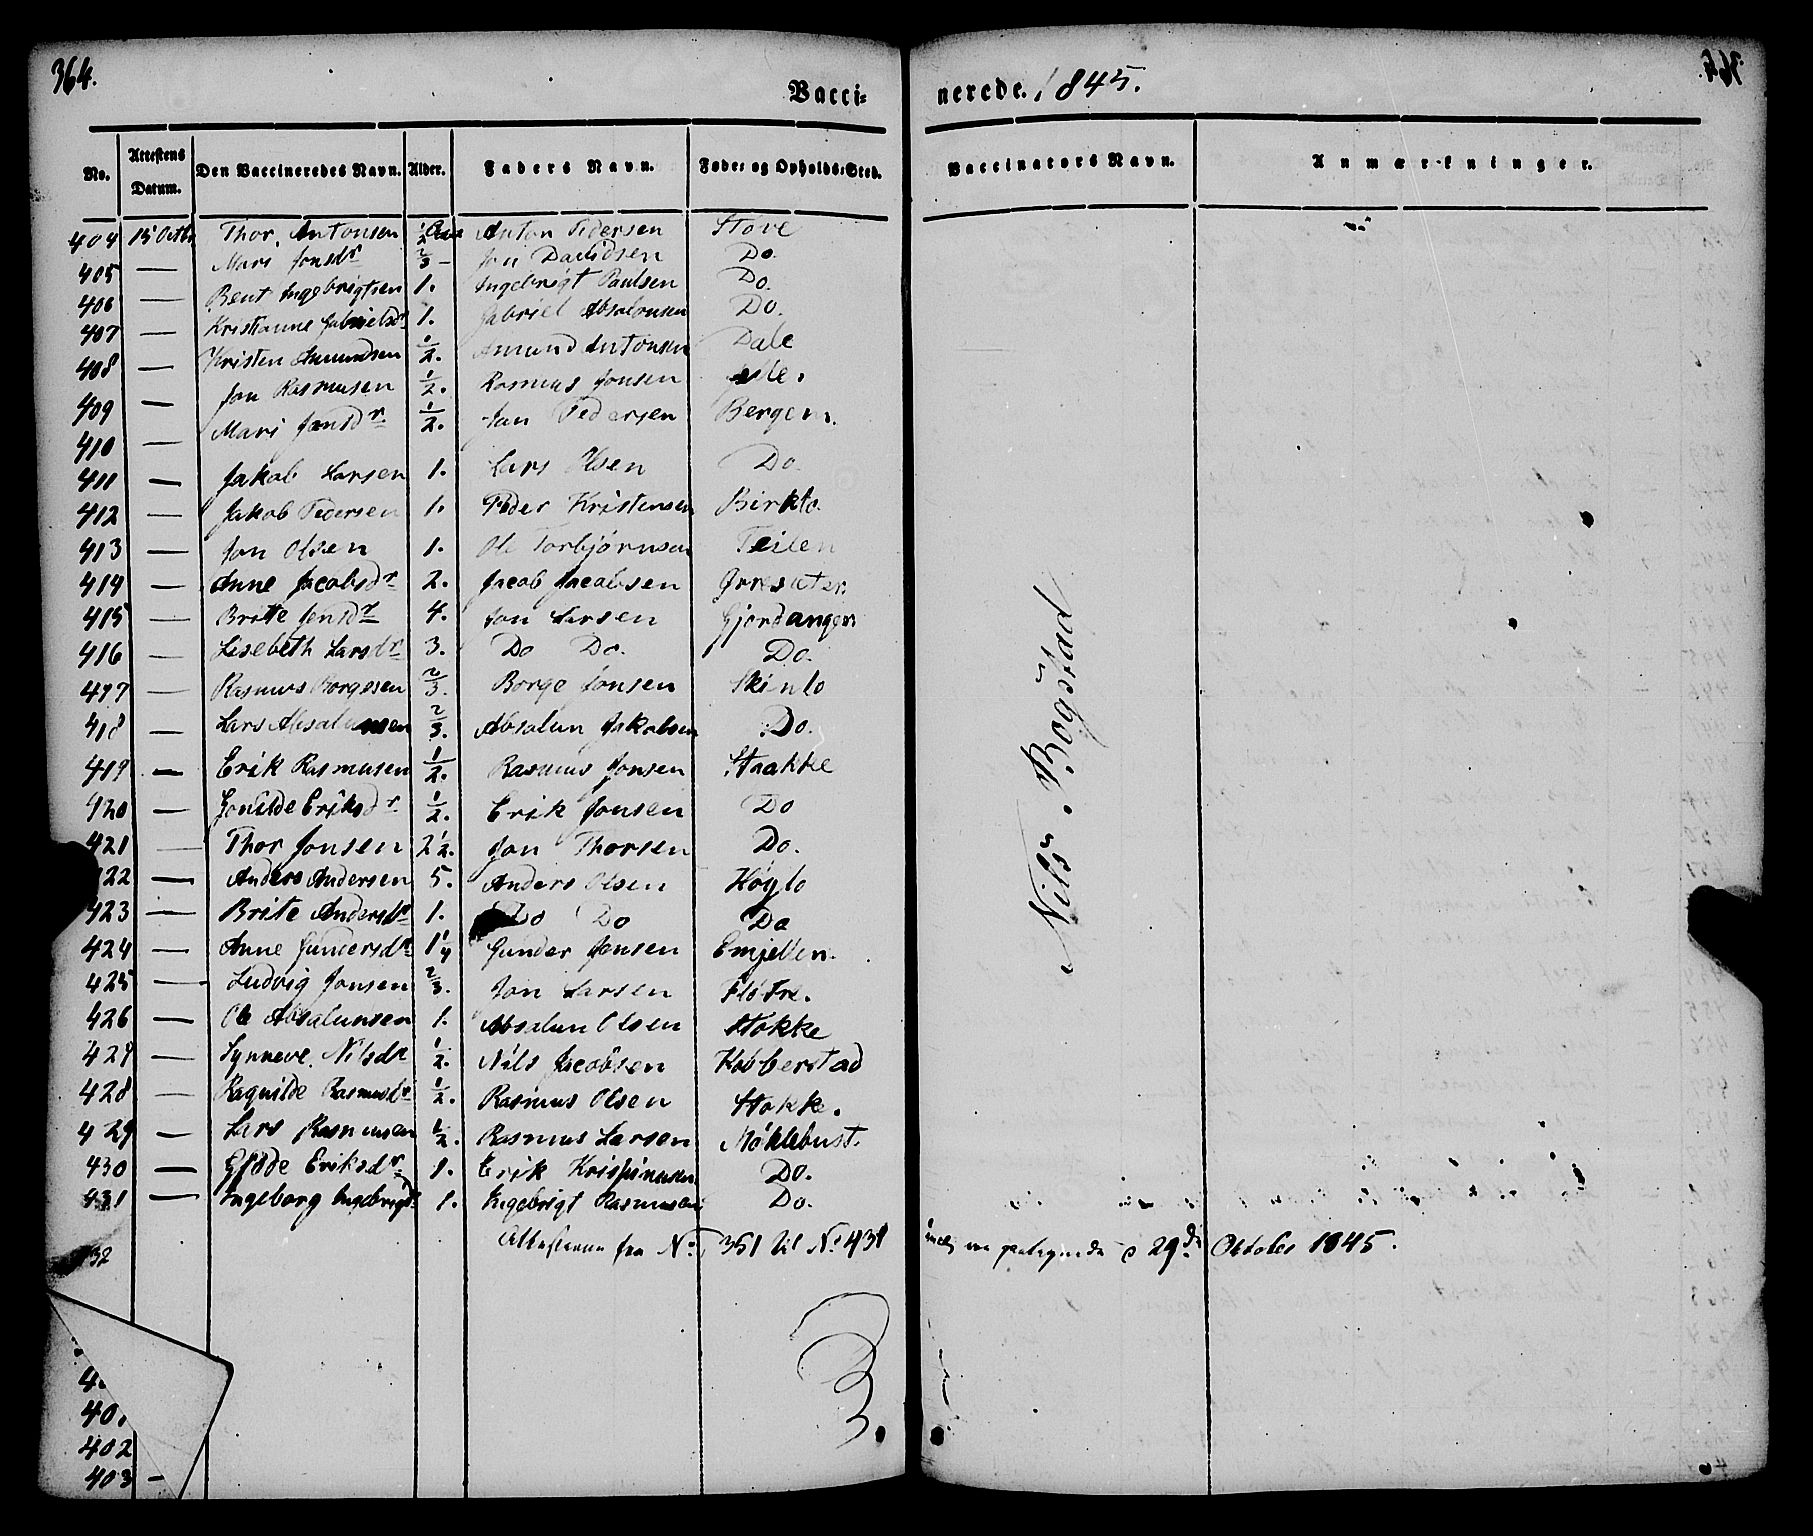 364.
Vaccinerede. 1845.
No. Attestens Datum. Den Vaccineredes Navn. Alder. Faders Navn. Føde- og Opholds-Sted. Vaccinators Navn. Anmærkninger.
404 15 Octbr Thor. Antonsen 1/2 Anton Pedersen Støve
405 — Mari Jonsdr 2/3 — Jon Davidsen Do.
406 — Bent Ingebrigtsen 1. Ingebrigt Paulsen Do.
407 — Kristianne Gabrielsdr 1. Gabriel Absalonsen Do.
408 — Kristen Amundsen 1/2. Amund Antonsen Dale
409 — Jon Rasmusen 1/2. Rasmus Jonsen
410 — Mari Jonsdr 1/2. Jon Pedersen Bergem.
411 — Jakob Larsen 1. Lars Olsen Do.
412 — Jakob Pedersen 1. Peder Kristensen Birklo.
413 — Jon Olsen 1. Ole Torbjørnsen Teilen
414 — Anne Jacobsdr 2. Jacob Jacobsen Ørresæter.
415 — Britte Jonsdr 4. Jon Larsen Gjordangen
416 — Lisebeth Larsdr 3. Do Do. Do.
417 — Rasmus Borgesen 2/3. Borge Jonsen Skinlo
418 — Lars Absalunsen 2/3. Absalun Jakobsen Do.
419 — Erik Rasmusen 1/2. Rasmus Jonsen Staakke
420 — Gonilde Eriksdr 1/2. Erik Jonsen Do
421 — Thor Jonsen 2 1/2. Jon Thorsen Do.
422 — Anders Andersen 5. Anders Olsen Høylo
423 — Brite Andersdr 1. Do Do Do
424 — Anne Gundersdr 1 1/4 Gunder Jensen Emjellen.
425 — Ludvig Jonsen 2/3. Jon Larsen Fløtre.
426 — Ole Absalunsen 1. Absalun Olsen Stokke
427 — Synneve. Nilsdr 1/2. Nils Jacobsen Kobberstad
428 — Ragnilde Rasmusdr 1/2. Rasmus Olsen Stokke.
429 — Lars Rasmusen 1/2. Rasmus Larsen Møklebust.
430 — Eriksdr 1. Erik Do.
431 — Ingeborg Ingebrigtsdr 1. Ingebrigt Rasmusen Do.
Nils. Bogstad
432 Attesterne fra No 351 til No 431 29de Oktober 1845.
40
402
403 —